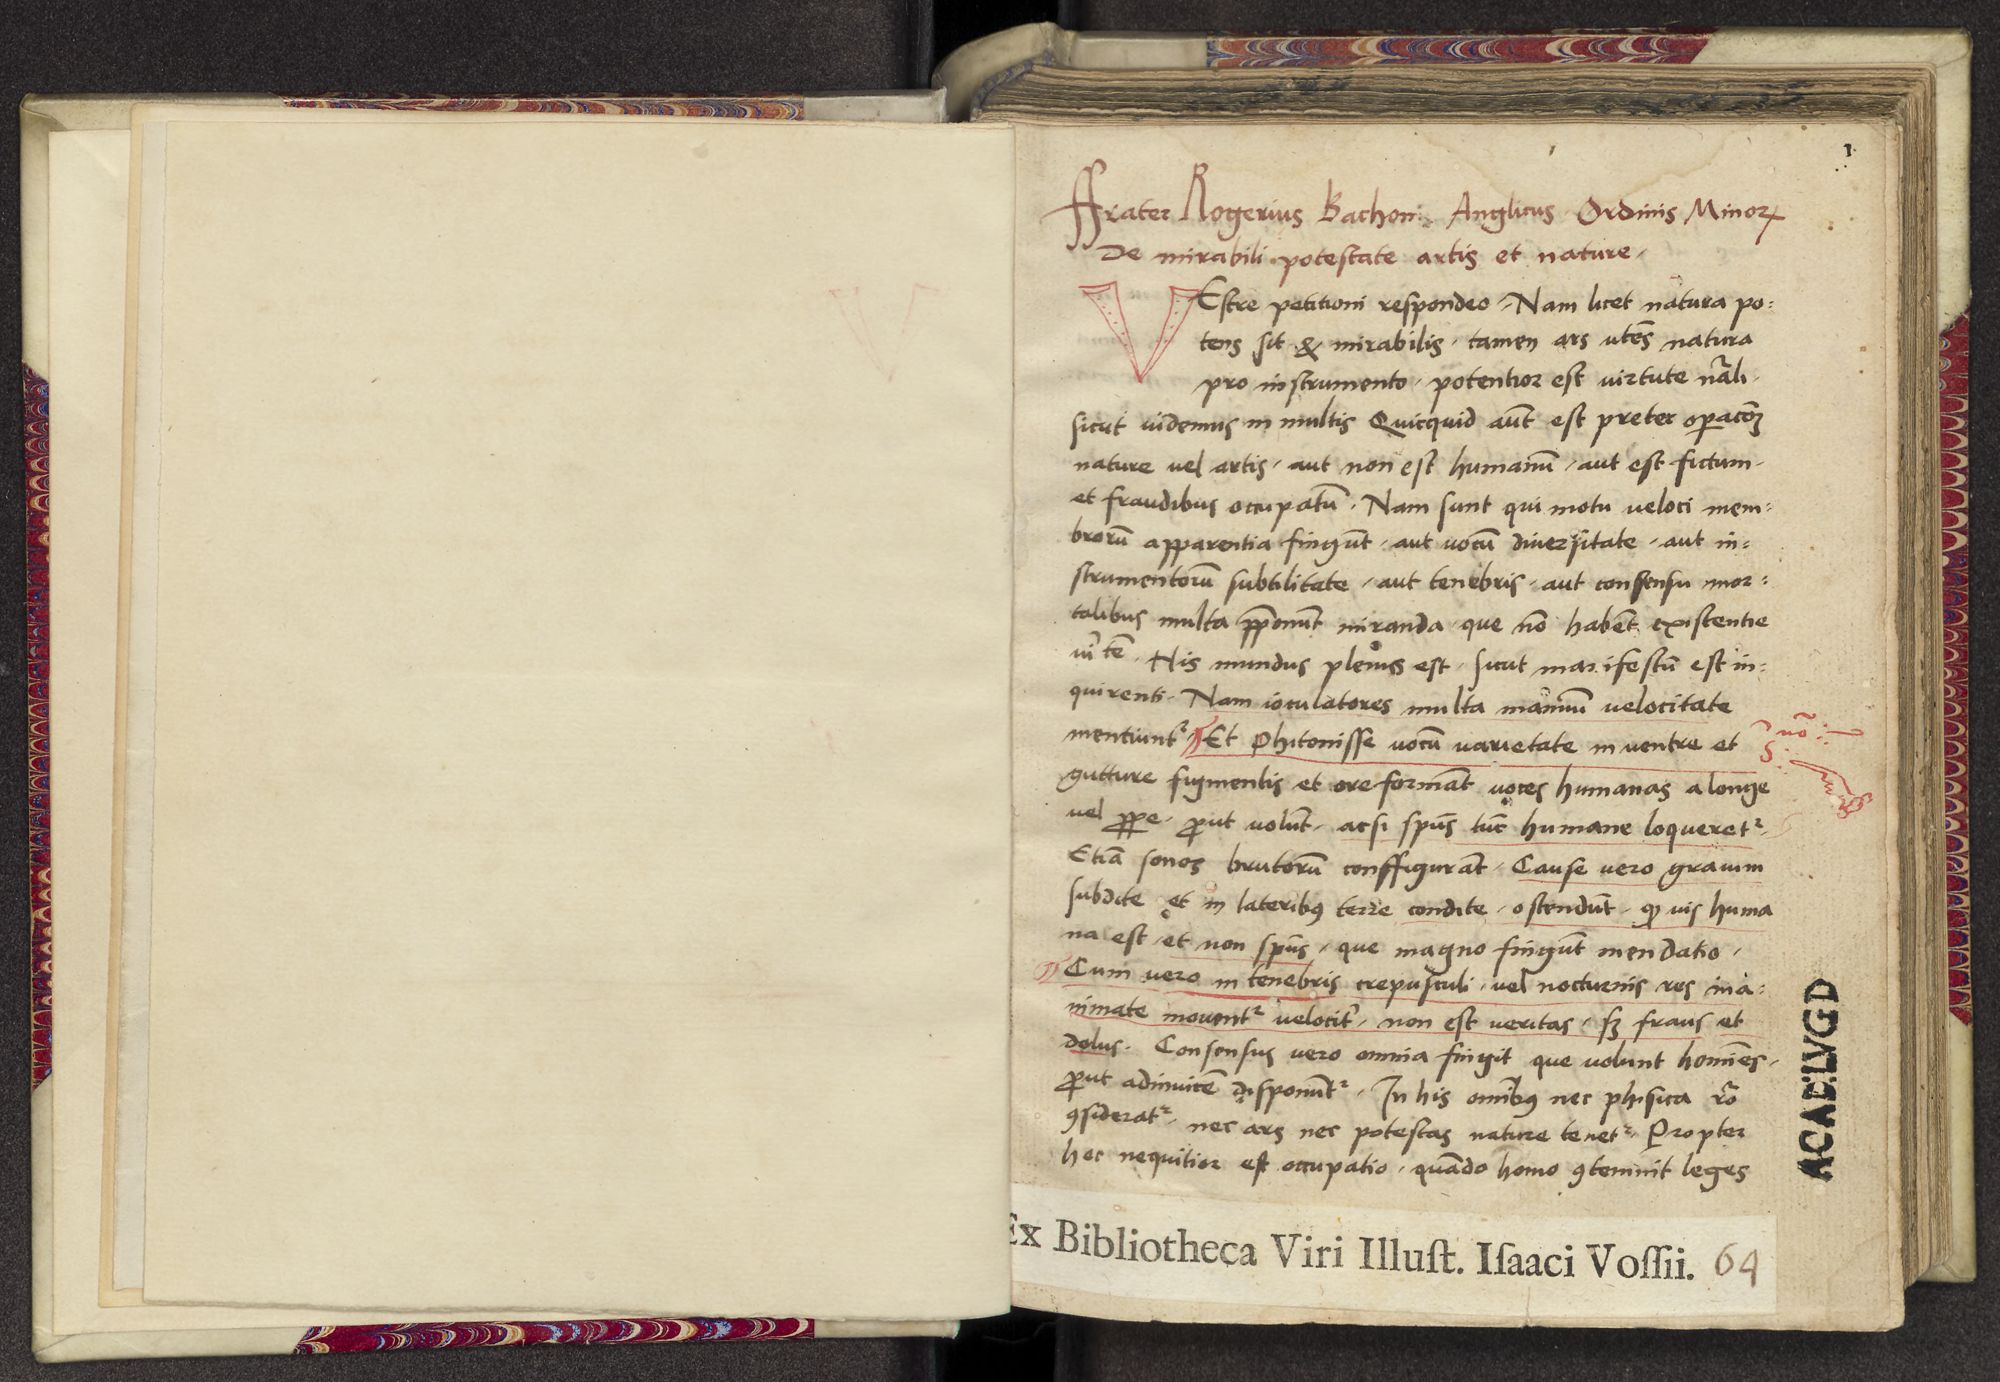 1
Frater Rogerius Bachon: Anglicus Ordinis Minorꝝ
De mirabili potestate artis et nature.
VEstre petitioni respondeo. Nam licet natura po:
tens sit & mirabilis. tamen ars utēs natura
pro instrumento. potentior est virtute nãli.
sicut videmus in multis Quicquid aūt est preter oꝑacōꝫ
nature vel artis. aut non est humanū. aut est fictum.
et fraudibus occupatū. Nam sunt qui motu veloci mem:
brorū apparentia fingūt. aut vocū diversitate. aut in:
strumentorū subtilitate. aut tenebris. aut consensu mor:
talibus multa ꝓponūt miranda. que nō habēt existentie
His mundus plenus est. sicut manifestū est in:
quirenti. Nam ioculatores multa manuū velocitate
mentiunt² Et Phitonisse vocū varietate in ventre et
nō:
gutture figmentis et ore formāt voces humanas a longe
vel ꝓpe. ꝓut volūt. acsi spūs tūc humane loqueret².
Etiā sonos brutorū conffigurāt. Cause vero gravium
subdite et in lateribꝰ terre condite. ostendūt. ꝙ vis huma
na est. et non spūs. que magno fingūt mendatio.
Cum vero in tenebris crepusculi. vel nocturnis res ina:
nimate movent² velocit̉. non est veritas. sꝫ fraus et
dolus. Consensus vero omnia fingit que volunt homīes.
ꝓut adinvicē disponūt². In his omībꝰ nec phisica rõ
ꝯsiderat². nec ars nec potestas nature tenet². Propter
hec nequitior est occupatio. quādo homo ꝯtemnit leges
ACAD.LVGD
Ex Bibliotheca Viri Illuſt. Iſaaci Voſſii. 64